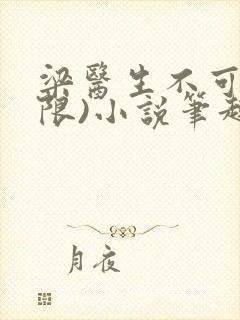 梁醫生不可
限)小說筆趣
月夜